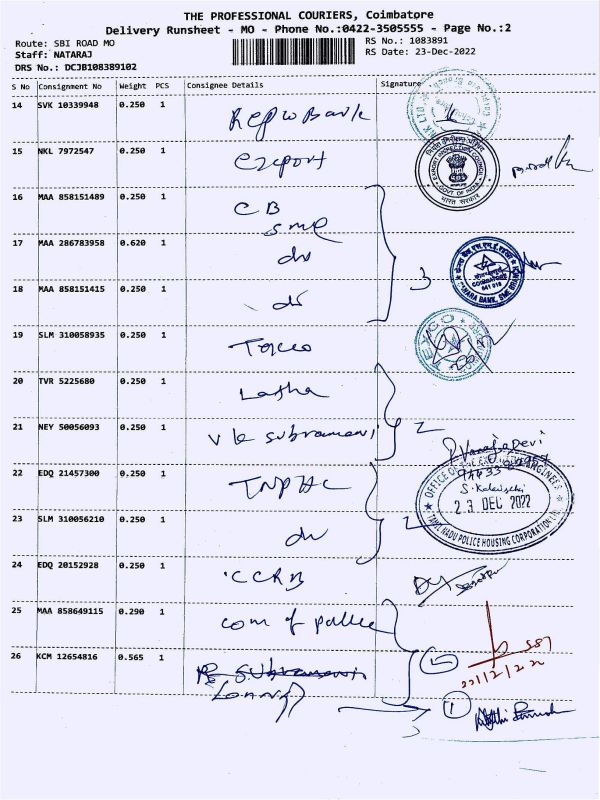 THE PROFESSIONAL COURIERS, Coimbatore
Delivery Runsheet - MO - Phone No.:0422-3505555 - Page No.:2
Route: SBI ROAD MO
RS No.: 1083891
Staff: NATARAJ
RS Date: 23-Dec-2022
DRS No.: DCJB108389102
S No Consignment No Weight PCS Consignee Details Signature
14 SVK 10339948 0.250 1 Repco Bank
15 NKL 7972547 0.250 1 Export
EXPORT INSPECTION COUNCIL
GOVT OF INDIA
भारत सरकार
16 MAA 858151489 0.250 1 CB
SME
17 MAA 286783958 0.620 1 do
3
CANARA BANK, SME BRANCH
COIMBATORE
641 018
18 MAA 858151415 0.250 1 do
19 SLM 310058935 0.250 1
TEXCO
20 TVR 5225680 0.250 1 Latha
21 NEY 50056093 0.250 1 V K Subramani 2
22 EDQ 21457300 0.250 1 TNPHC
23 DEC 2022
TAMIL NADU POLICE HOUSING CORPORATION LTD
23 SLM 310056210 0.250 1 do 2
24 EDQ 20152928 0.250 1 CCRB
25 MAA 858649115 0.290 1 Com of police
26 KCM 12654816 0.565 1
1